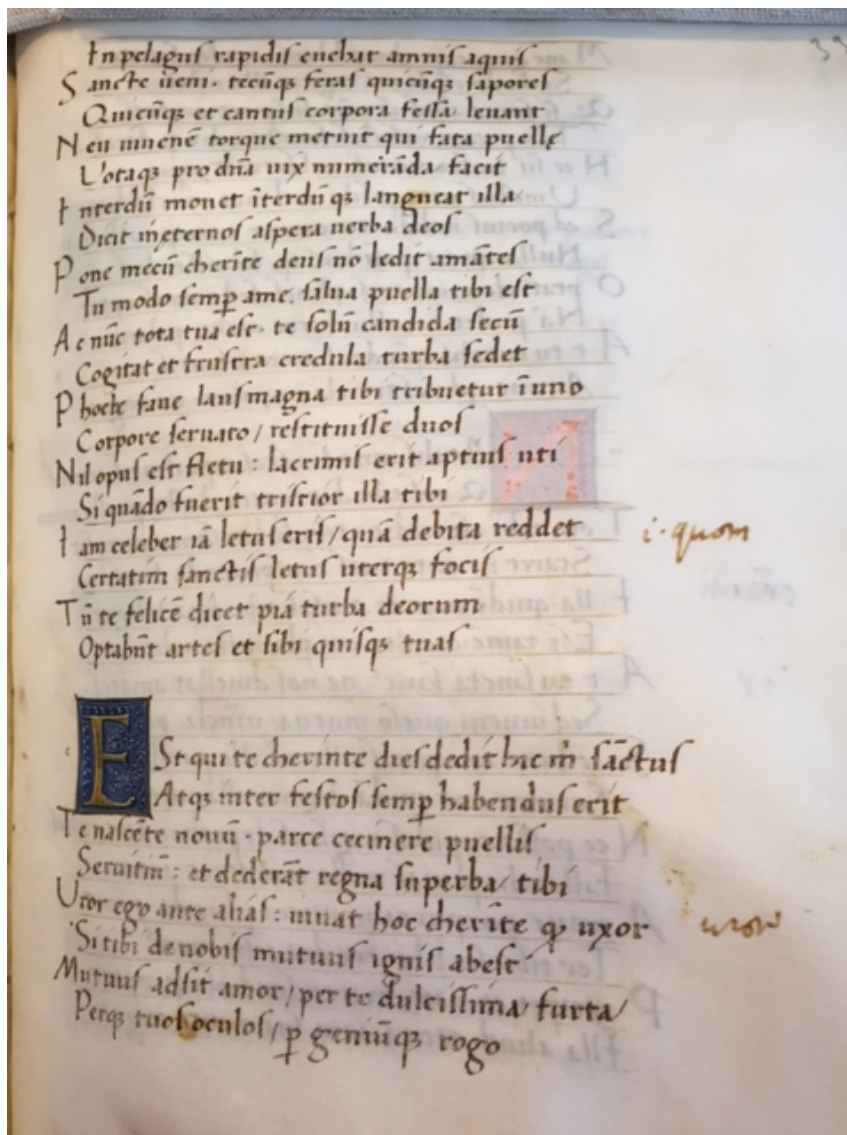 33
In pelagus rapidis euehat amnis aquis
Sancte ueni · tecūqꝫ feras quicūqꝫ sapores
Quicūqꝫ et cantus corpora fessa leuant
Neu iuuenē torque metuit qui fata puellę
Votaqꝫ pro dnā uix numerāda facit
Interdū mouet īterdū qꝫ langueat illa
Dicit ineternos aspera uerba deos
Pone metū cherīte deus nō ledit amātes
Tu modo semꝑ ama. salua puella tibi est
Ac nūc tota tua est · te solū candida secū
Cogitat et frustra credula turba sedet
Phoebe faue laus magna tibi tribuetur ī uno
Corpore seruato / restituisse duos
Nil opus est fletu : lacrimis erit aptius uti
Si quādo fuerit tristior illa tibi
Iam celeber iā letus eris / quā debita reddet i · quom
Certatim sanctis letus uterqꝫ focis
Tū te felicē dicet pia turba deorum
Optabūt artes et sibi quisqꝫ tuas
Est qui te cherinte dies dedit hic m̄ sāctus
Atqꝫ inter festos semꝑ habendus erit
Te nascēte nouū · parce cecinere puellis
Seruitiū : et dederāt regna superba / tibi
Uror ego ante alias : iuuat hoc cherīte ꝙ uxor uror
Si tibi de nobis mutuus ignis abest
Mutuus adsit amor / per te dulcissima furta /
Perqꝫ tuos oculos / ꝑ geniūqꝫ rogo